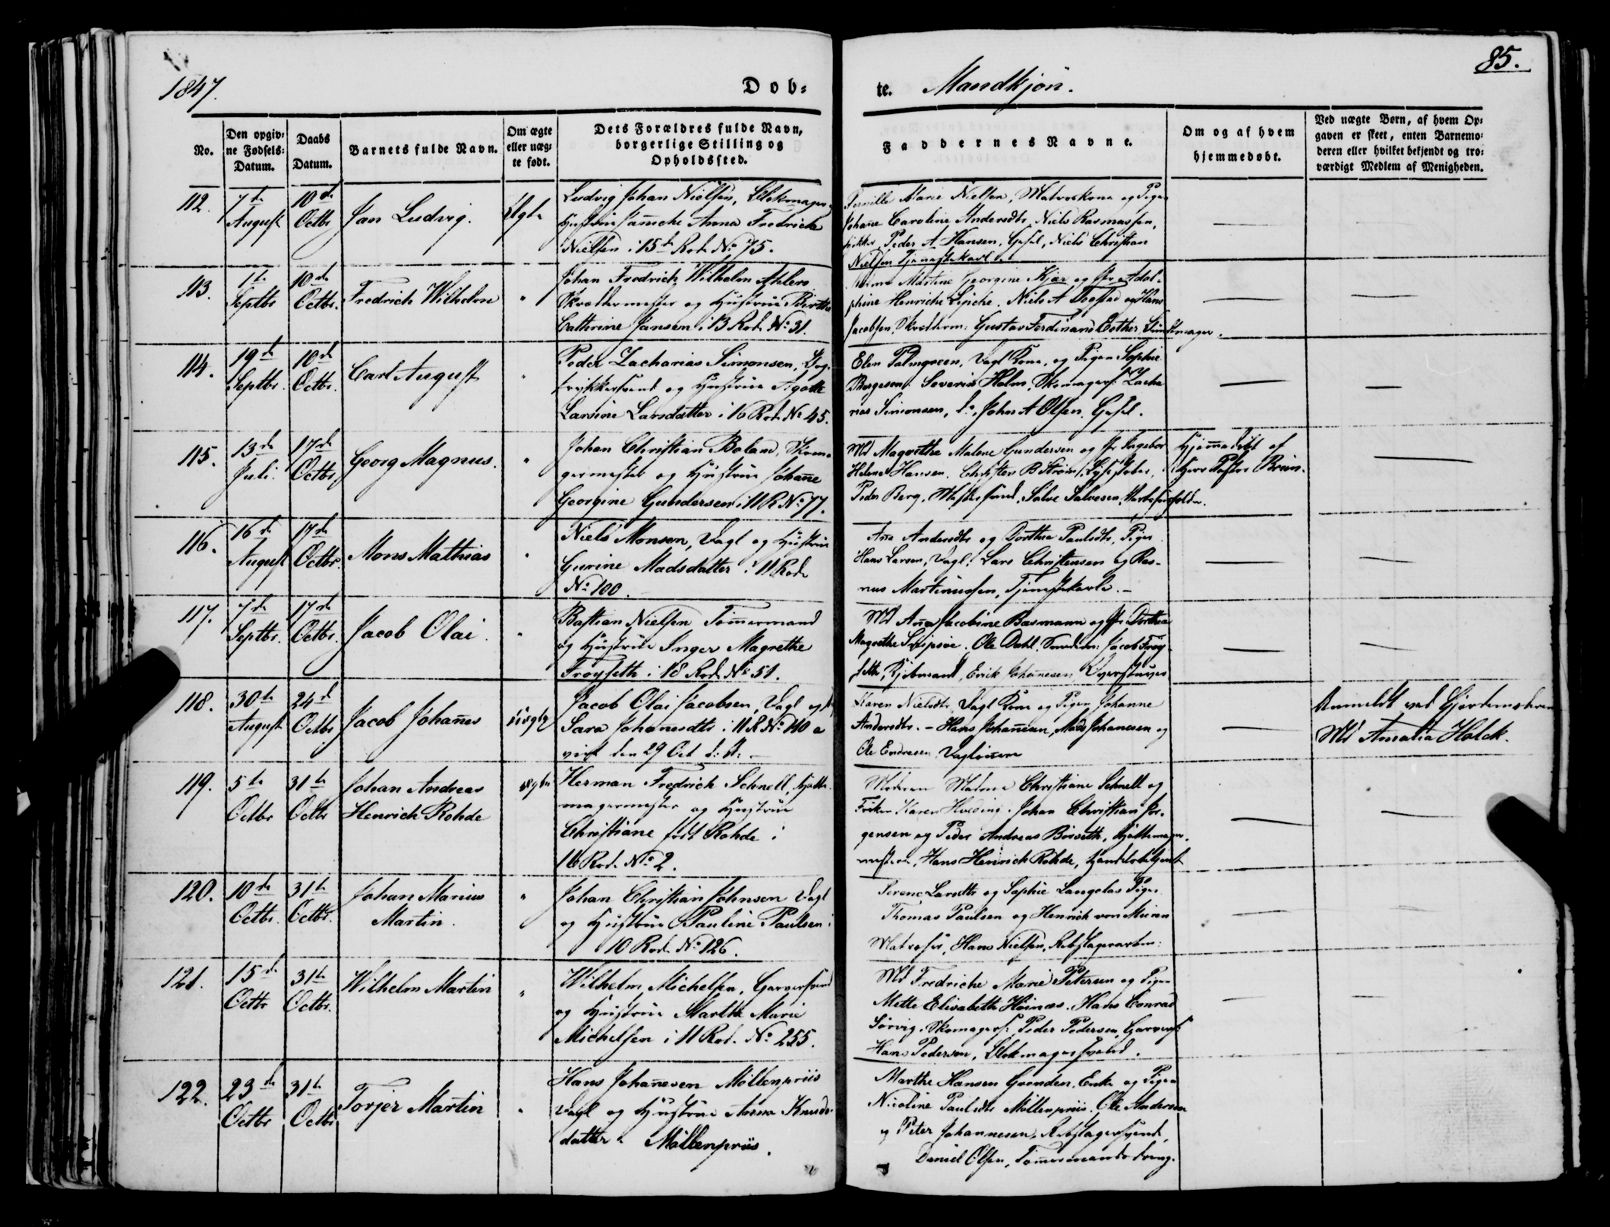 1847.
Døb-
te. Mandkjøn.
85.
No.
Den opgiv-
ne Fødsels-
Datum.
Daabs
Datum.
Barnets fulde Navn.
Om ægte
eller uæg-
te født.
Dets Forældres fulde Navn,
borgerlige Stilling og
Opholdssted.
Faddernes Navne.
Om og af hvem
hjemmedøbt.
Ved uægte Børn, af hvem Op-
gaven er skeet, enten Barnemo-
deren eller hvilket bekjendt og tro-
værdigt Medlem af Menigheden.
112. 7de August 10de Octbr. Jan Ludvig.
Ludvig Johan Nielsen, Blokmager
Hustrue Anna Fredrikke
Nielsen i 15de Rod. No 75.
Pernille Marie Nielsen, Matroskone og Pigen
Johane Caroline Andersdtr, Niels Rasmussen,
Peder A. Hansen, Gesel, Niels Christian
Nielsen Tjenestekarl.
113. Septbr. 10de Octbr. Fredrich Wilhelm "
Johan Fredrich Wilhelm Ahlers
Skreddermester og Hustrue Birthe
Cathrine Jansen i 13 Rod. No 31.
Martine Georgine Kjær og
phine Henriche Niels A og Hans
Jacobsen, Skredderm: Gustav Ferdinand
114. 19de Septbr. 10de Octbr. Carl August "
Peder Zacharias Simonsen, Bog-
trykkersvend og Hustrue Agathe
Larsine Larsdatter i 16 Rod. No 45.
Elen Palmgreen, Vagt Kone, og Pigen Sophie
Børgesen. Severin Holm, Skomagers: Zacha-
rias Simonsen, do, John A Olsen, Gesel.
115. 13de Juli. 17de Octbr. Georg Magnus. "
Johan Christian Boland, Skoma-
germester og Hustrue Johane
Georgine Gundersen i 11 R No 77.
Md Magrethe Malene Gundersen og Jfr Ingebor
Helene Hansen,
Peder Berg, Salve Salvesen,
Hjemmedøbt af
Hans Pastor Bruun.
116. 16de August 17de Octbr. Mons Mathias "
Niels Monsen, Vagt og Hustrue
Gurine Madsdatter i 11 Rod.
No 100.
Ane Andersdtr og Dorthea Paulsdtr, Piger
Hans Larsen, Vagt. Lars Christensen og Ras-
mus Martinussen, Tjenestekarle.
117. 7de Septbr. 17de Octbr. Jacob Olai. "
Bastian Nielsen Tømmermand
og Hustrue Inger Magrethe
Frøyseth i 18 Rod. No 51.
Md Ana Jacobine Basmann og Jfr Dorthea
Magrethe Ole Dahl, Jacob Frøy-
seth, Erik Johanesen,
118. 30te August 24de Octbr. Jacob Johanes uægte
Jacob Olai Jacobsen, Vagt og
Sara Johanesdtr i 11 R No 110 a
viet den 29 Oct. d. A.
Karen Nielsdtr, Vagt Kone og Pigen Johanne
Andersdtr. - Hans Johanesen, Mads Johanesen og
Ole Endresen, Vagtmænd
Anmeldt ved Gjordemoderen
Md Amalia Holck.
119. 5te Octbr. 31te Octbr. Johan Andreas
Henrich Rohde
ægte
Herman Fredrich Schnell, Hatte-
magermester og Hustrue
Christiane født Rohde i
16 Rod. No 2.
Moderen Madme Christiane Schnell og
Johan Christian Jør-
gensen og Peder Andreas Hattemager-
mestere, Hans Henrich Rohde,
120. 10de Octbr. 31te Octbr. Johan Marius
Martin.
"
Johan Christian Johnsen Vagt
og Hustrue Pauline Paulsen i
10 Rod. No 126.
Serene Larsdtr og Sophie Langelas Piger
Thomas Paulsen og Henrich von Müren
Matroser, Hans Nielsen,
121. 15de Octbr. 31te Octbr. Wilhelm Martin "
Wilhelm Michelsen, Garversvend
og Hustrue Marthe Marie
Michelsen i 11 Rod. No 255.
Md Fredriche Marie Petersen og Pigen
Mette Elisabeth Hans Conrad
Sørvig, Skomagers: Peder Pedersen, Garvers:
Hans Pedersen, Blokmagersvend.
122. 23de Octbr. 31te Octbr. Torjer Martin "
Hans Johanesen Möllenpriis
Vagt og Hustrue Anna Knuds-
datter i Möllenpriis.
Marthe Hansen Gronden, Enke og Pigen
Nicoline Paulsdtr Möllenpriis, Ole Andersen
og Peter Johannesen, Rebslagersvend,
Daniel Olsen, Tømermandsdreng.